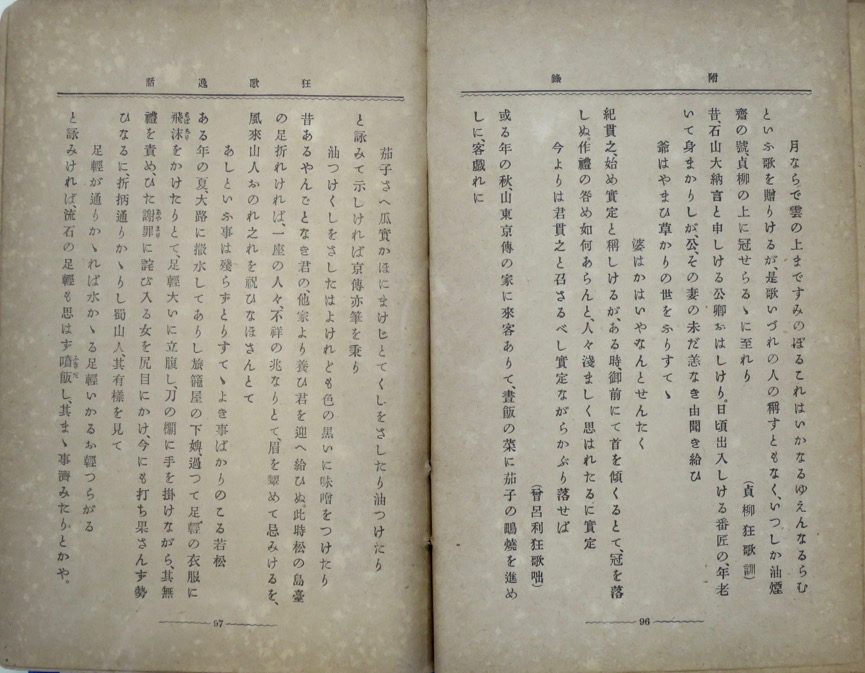 附錄
月ならで雲の上まですみのぼるこれはいかなるゆえんなるらむ
といふ歌を贈りけるが、是歌いづれの人の稱すともなく、いつしか油煙
齋の號、貞柳の上に冠せらるゝに至れり
(貞柳狂歌訓)
昔、石山大納言と申しける公卿おはしけり。日頃出入しける番匠の、年老
いて身まかりしが、公その妻の未だ恙なき由聞き給ひ
爺はやまひ草かりの世をふりすてゝ
婆はかはいやなんとせんたく
紀貫之始め實定と稱しけるが、ある時、御前にて首を傾くるとて、冠を落
しぬ、作禮の咎め如何あらんと、人々淺ましく思はれたるに實定
今よりは君貫之と召さるべし實定ながらかぶり落せば
(曾呂利狂歌咄)
或る年の秋、山東京傳の家に來客ありて、晝飯の菜に茄子の鴫燒を進め
しに、客戲れに
96
狂歌逸話
茄子さへ瓜實かほにまけじとてくしをさしたり油つけたり
と詠みて示しければ京傳亦筆を秉り
油つけくしをさしたはよけれども色の黑いに味噌をつけたり
昔あるやんごとなき君の、他家より養ひ君を迎へ給ひぬ。此時松の島臺
の足折れければ、一座の人々、不祥の兆なりとて、眉を顰めて忌みけるを、
風來山人おのれ之れを祝ひなほさんとて
あしといふ事は殘らずとりすてゝよき事ばかりのこる若松
ある年の夏、大路に撒水してありし旅籠屋の下婢、過つて足輕の衣服に
飛沫をかけたりとて、足輕大いに立腹し、刀の欛に手を掛けながら、其無
禮を責め、ひた謝罪に詫び入る女を尻目にかけ、今にも打ち果さんず勢
ひなるに、折柄通りかゝりし蜀山人、其有樣を見て
足輕が通りかゝれば水かゝる足輕いかるお輕つらがる
と詠みければ、流石の足輕も思はず噴飯し、其まゝ事濟みたりとかや。
97